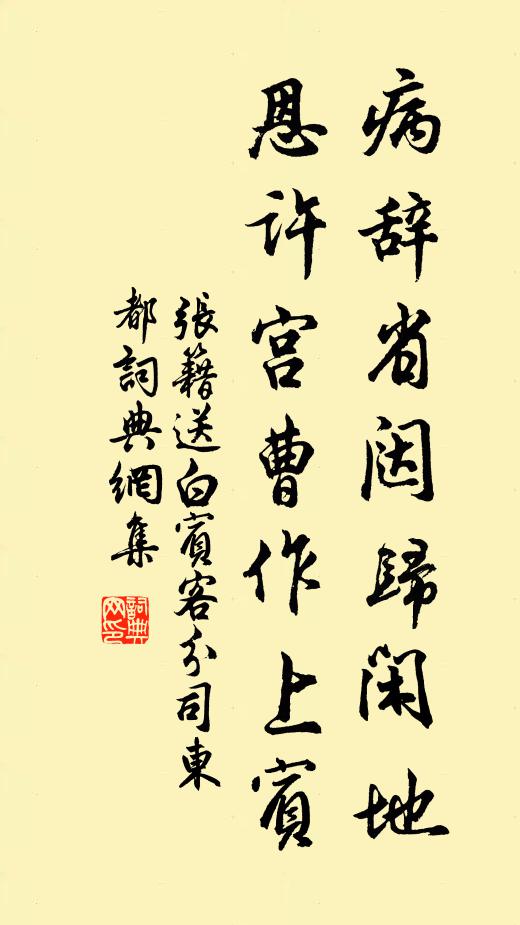 病辞省闼歸閑地
恩许宫曹作上賓
張籍送白賓客分司東
都詞典網集
詞典
网印